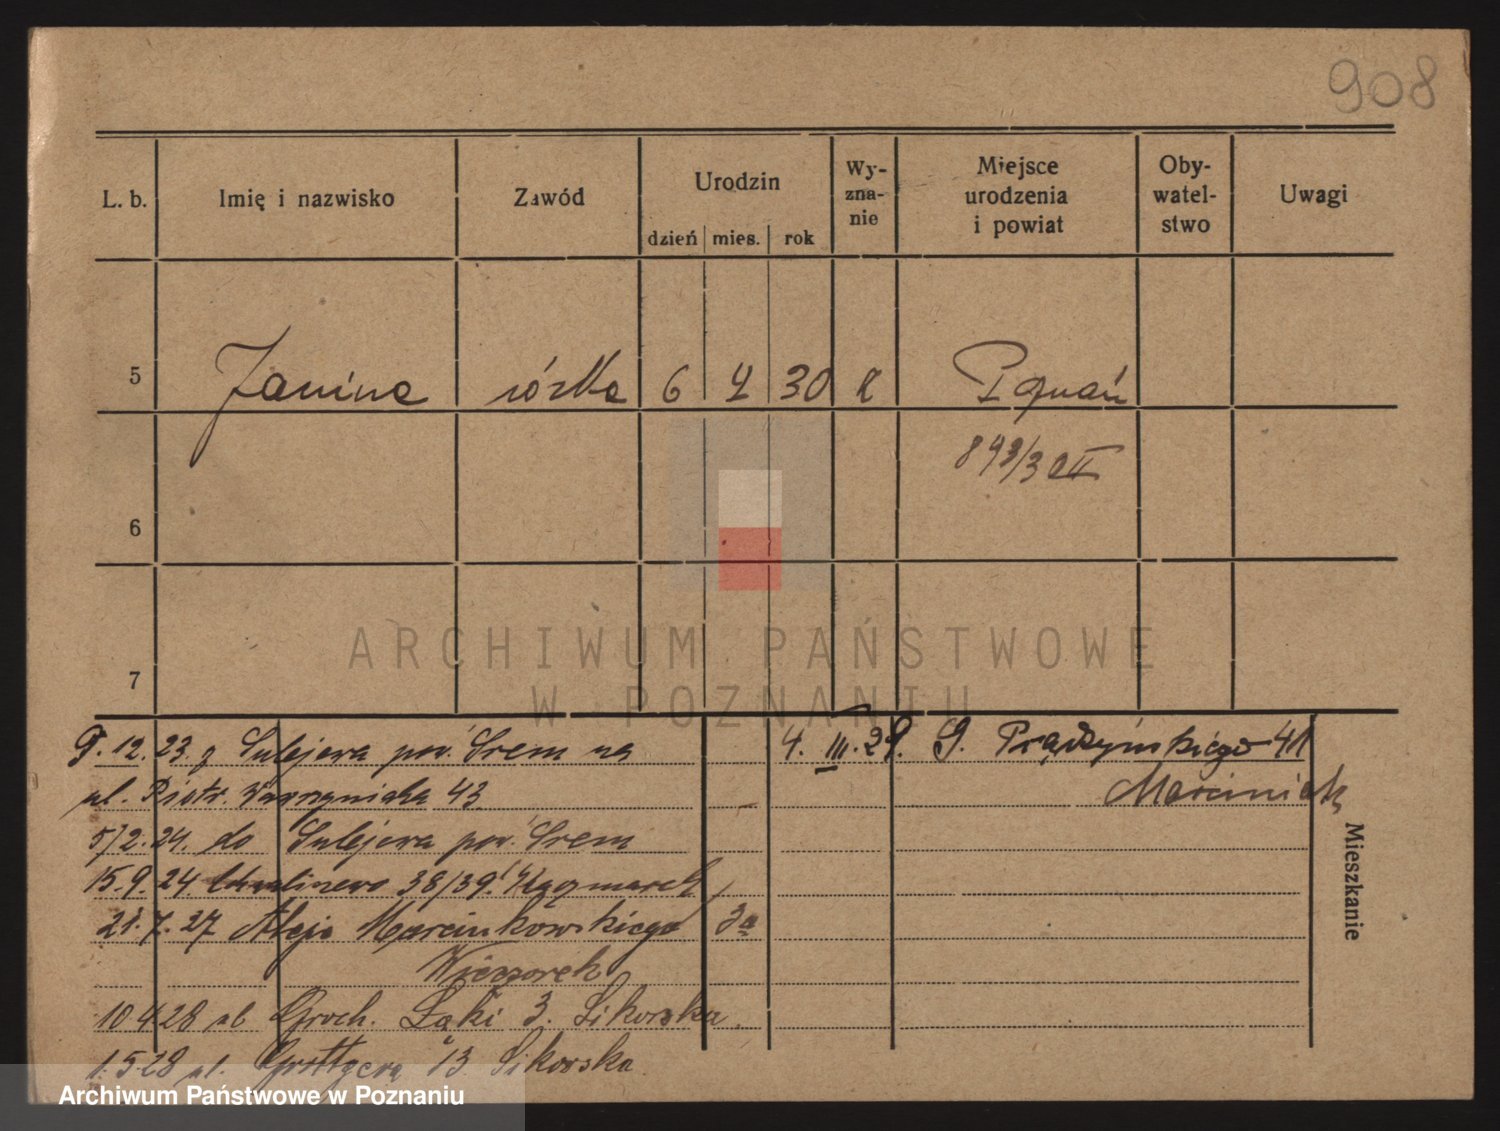 908
L. b. Imię i nazwisko Zawód Urodzin dzień mies. rok Wy-zna-nie Miejsce urodzenia i powiat Oby-watel-stwo Uwagi
5 Janina córka 6 30 Poznań
893/30 II
6
7
12. 23. z Sulejewa pow. Śrem na
ul. Piotr. Wawrzyniaka 43
5/2. 24. do Sulejewa pow. Śrem
15. 9. 24 38/39. Kaczmarek
21. 7. 27 Aleje Marcinkowskiego 3a
Wieczorek
10 4 28 ul Groch. Łąki 3. Sikorska
1. 5 28 ul. Grottgera 13 Sikorska
4. III. 29. Prądzyńskiego 41
Marciniak
Mieszkanie
ARCHIWUM PAŃSTWOWE
W POZNANIU
Archiwum Państwowe w Poznaniu